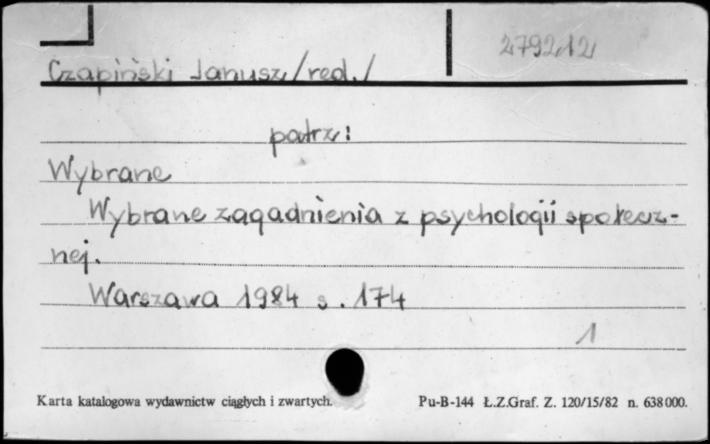 279212
Czapiński Janusz /red./
patrz:
Wybrane
Wybrane zagadnienia z psychologii społecz-
nej.
Warszawa 1984 s. 174
1
Karta katalogowa wydawnictw ciągłych i zwartych. Pu-B-144 Ł.Z.Graf. Z. 120/15/82 n. 638000.